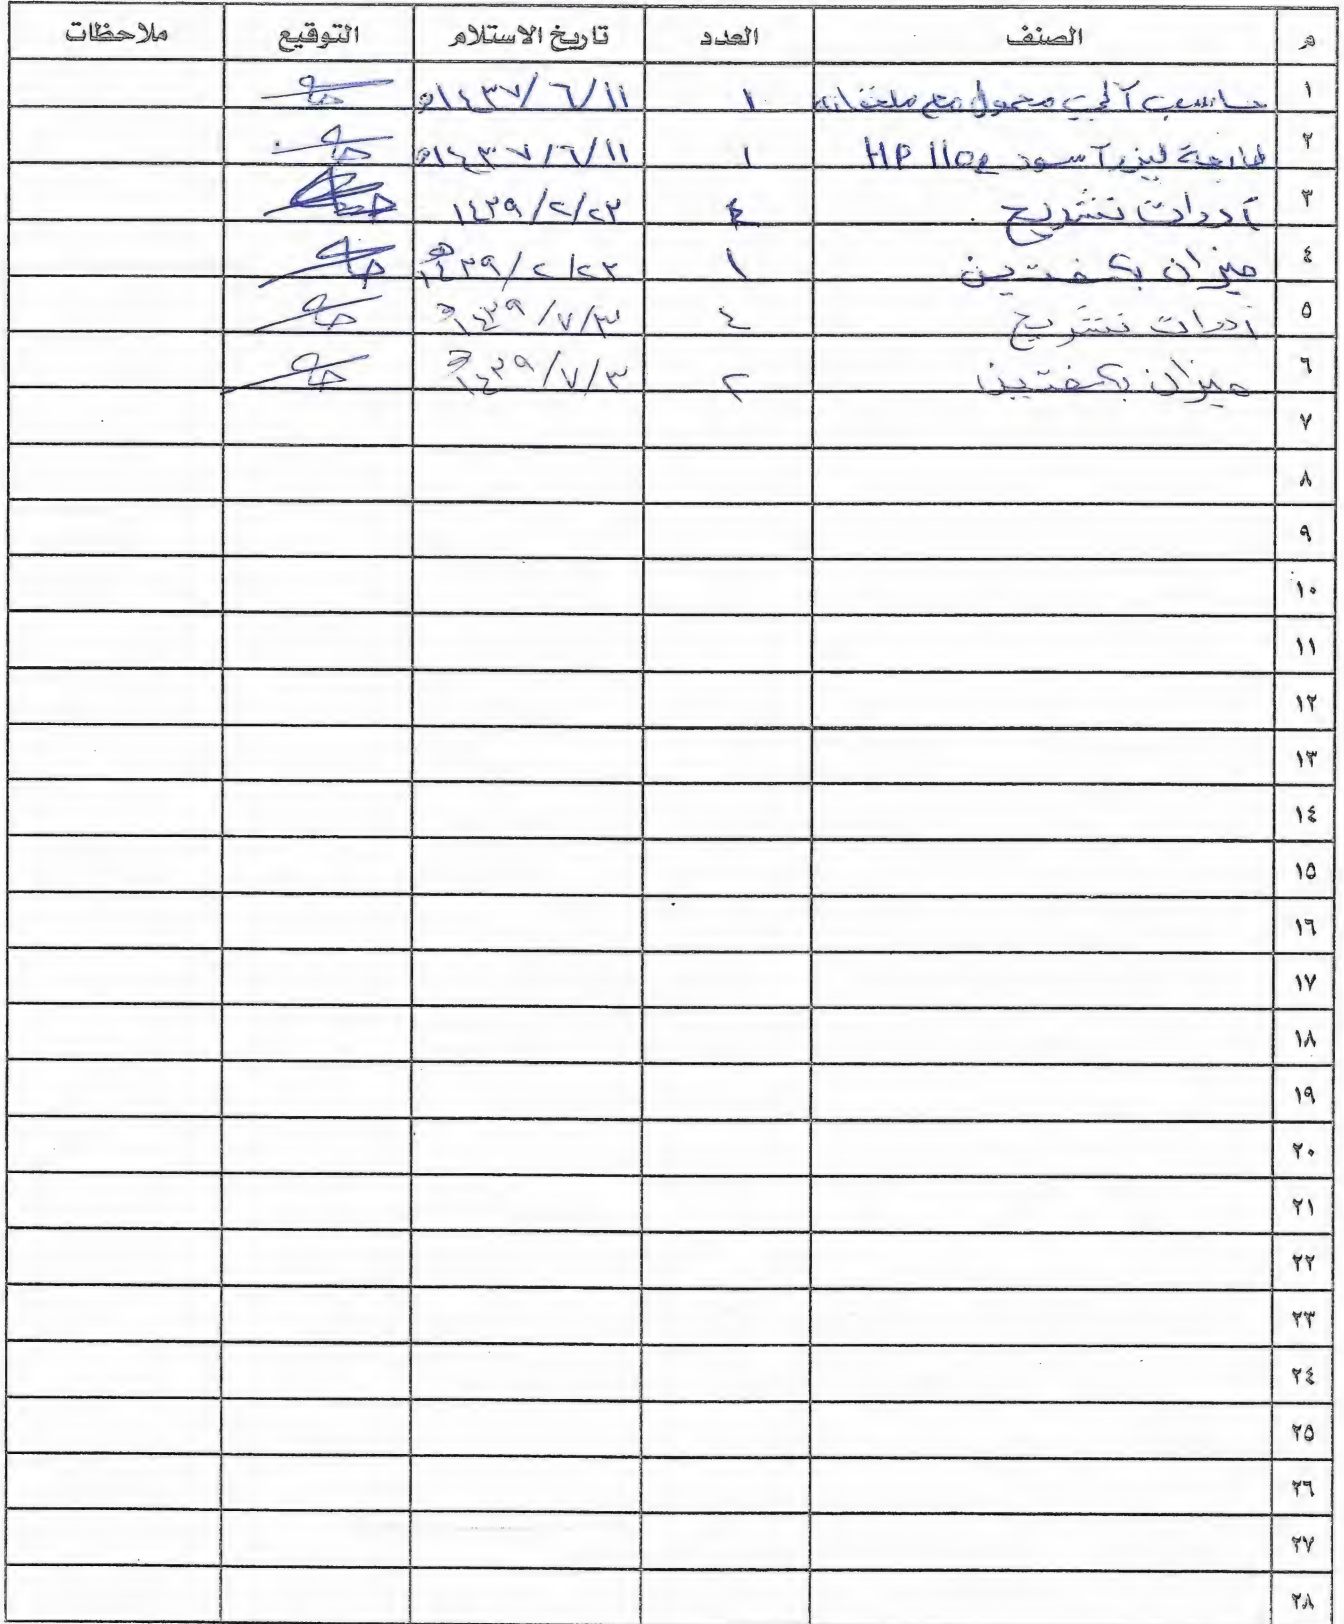 م الصنف العدد تاريخ الاستلام التوقيع ملاحظات
١ حاسب آلي محمول مع ملحقاته ١ ١٤٣٧/٦/١١هـ
٢ طابعة ليزر آسود HP 110e ١ ١٤٣٧/٦/١١هـ
٣ آدوات تشريح ٤ ١٤٣٩/٢/٢٣
٤ ميزان بكفتين ١ ١٤٣٩/٢/٢٣هـ
٥ آدوات تشريح ٤ ١٤٣٩/٧/٣هـ
٦ ميزان بكفتين ٢ ١٤٣٩/٧/٣هـ
٧
٨
٩
١٠
١١
١٢
١٣
١٤
١٥
١٦
١٧
١٨
١٩
٢٠
٢١
٢٢
٢٣
٢٤
٢٥
٢٦
٢٧
٢٨